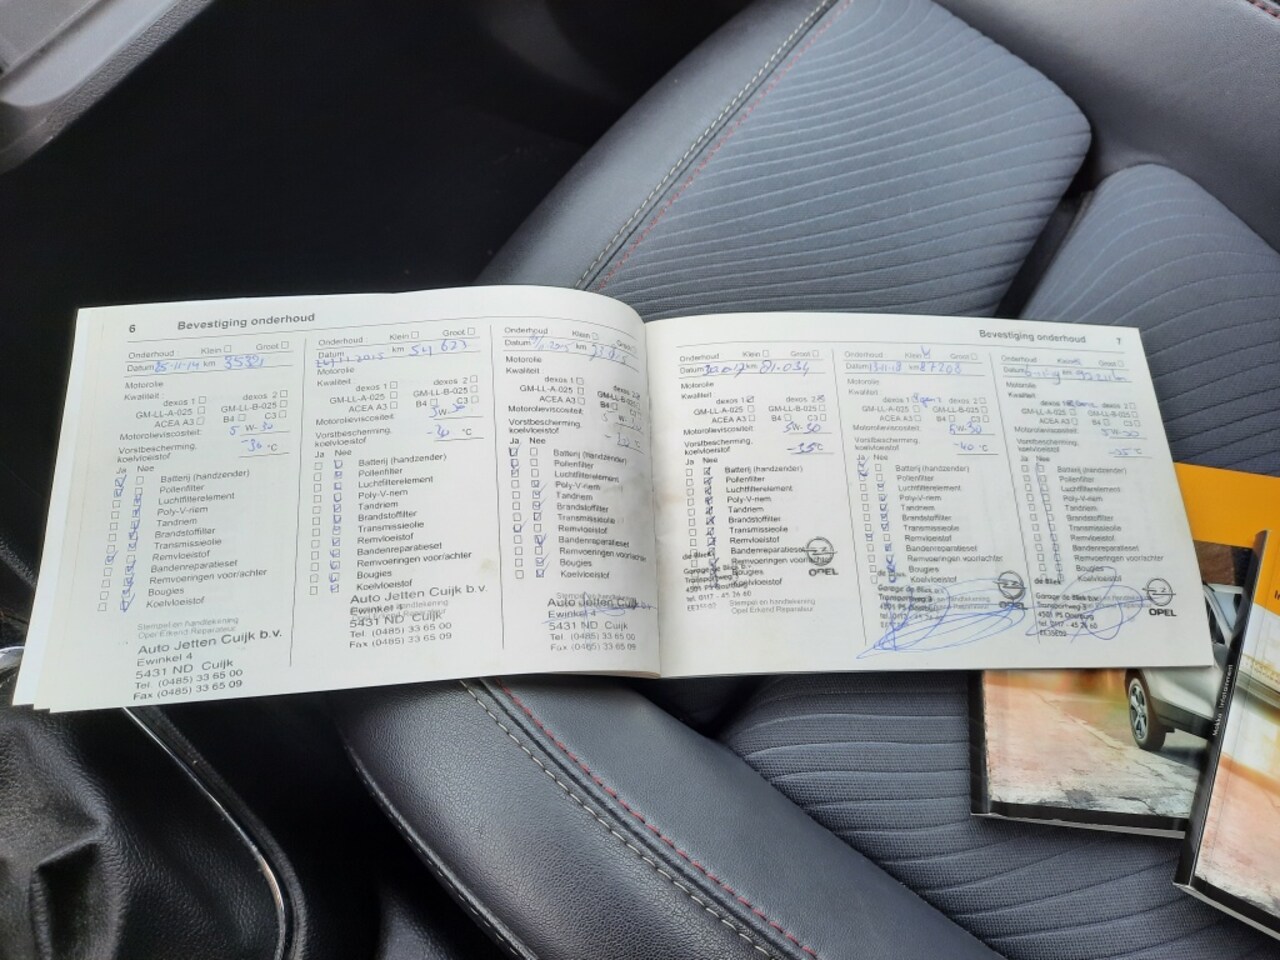 6 Bevestiging onderhoud
Onderhoud Klein Groot
Datum 25-11-14 km
Motorolie
Kwaliteit dexos 1 dexos 2
GM-LL-A-025 GM-LL-B-025
ACEA A3 B4 C3
Motorolieviscositeit: 5 W-30
Vorstbescherming,
koelvloeistof -36 °C
Ja Nee
Batterij (handzender)
Pollenfilter
Luchtfilterelement
Poly-V-riem
Tandriem
Brandstoffilter
Transmissieolie
Remvloeistof
Bandenreparatieset
Remvoeringen voor/achter
Bougies
Koelvloeistof
Stempel en handtekening
Opel Erkend Reparateur
Auto Jetten Cuijk b.v.
Ewinkel 4
5431 ND Cuijk
Tel. (0485) 33 65 00
Fax (0485) 33 65 09
Onderhoud Klein Groot
Datum km 54 623
Motorolie
Kwaliteit dexos 1 dexos 2
GM-LL-A-025 GM-LL-B-025
ACEA A3 B4 C3
Motorolieviscositeit: 5W-30
Vorstbescherming,
koelvloeistof °C
Ja Nee
Batterij (handzender)
Pollenfilter
Luchtfilterelement
Poly-V-riem
Tandriem
Brandstoffilter
Transmissieolie
Remvloeistof
Bandenreparatieset
Remvoeringen voor/achter
Bougies
Koelvloeistof
Auto Jetten Cuijk b.v.
Ewinkel 4
5431 ND Cuijk
Tel. (0485) 33 65 00
Fax (0485) 33 65 09
Onderhoud Klein Groot
Datum km
Motorolie
Kwaliteit dexos 1 dexos 2
GM-LL-A-025 GM-LL-B-025
ACEA A3 B4 C3
Motorolieviscositeit:
Vorstbescherming,
koelvloeistof
Ja Nee
Batterij (handzender)
Pollenfilter
Luchtfilterelement
Poly-V-riem
Tandriem
Brandstoffilter
Transmissieolie
Remvloeistof
Bandenreparatieset
Remvoeringen voor/achter
Bougies
Koelvloeistof
Stempel en handtekening
Auto Jetten Cuijk b.v.
Ewinkel 4
5431 ND Cuijk
Tel. (0485) 33 65 00
Fax (0485) 33 65 09
Bevestiging onderhoud 7
Onderhoud Klein Groot
Datum km
Motorolie
Kwaliteit
dexos 1 dexos 2
GM-LL-A-025 GM-LL-B-025
ACEA A3 B4 C3
Motorolieviscositeit: 5W-30
Vorstbescherming,
koelvloeistof -35°C
Ja Nee
Batterij (handzender)
Pollenfilter
Luchtfilterelement
Poly-V-riem
Tandriem
Brandstoffilter
Transmissieolie
Remvloeistof
Bandenreparatieset
Remvoeringen voor/achter
Bougies
Koelvloeistof
OPEL
4501 PS Oostburg
tel. 0117 - 45 26 60
Stempel en handtekening
Opel Erkend Reparateur
Onderhoud Klein Groot
Datum 13-11-18 km 87208
Motorolie
Kwaliteit
dexos 1 dexos 2
GM-LL-A-025 GM-LL-B-025
ACEA A3 B4 C3
Motorolieviscositeit: 5W-30
Vorstbescherming,
koelvloeistof -40 °C
Ja Nee
Batterij (handzender)
Pollenfilter
Luchtfilterelement
Poly-V-riem
Tandriem
Brandstoffilter
Transmissieolie
Remvloeistof
Bandenreparatieset
Remvoeringen voor/achter
Bougies
Koelvloeistof
4501 PS Oostburg
tel. 0117 - 45 26 60
Onderhoud Klein Groot
Datum km
Motorolie
Kwaliteit
dexos 2
GM-LL-A-025 GM-LL-B-025
ACEA A3 B4 C3
Motorolieviscositeit:
Vorstbescherming,
koelvloeistof °C
Ja Nee
Batterij (handzender)
Pollenfilter
Luchtfilterelement
Poly-V-riem
Tandriem
Brandstoffilter
Transmissieolie
Remvloeistof
Bandenreparatieset
Remvoeringen voor/achter
Bougies
Koelvloeistof
de Bliek
Garage de Bliek b.v.
Transportweg 3
4501 PS Oostburg
tel. 0117 - 45 26 60
OPEL